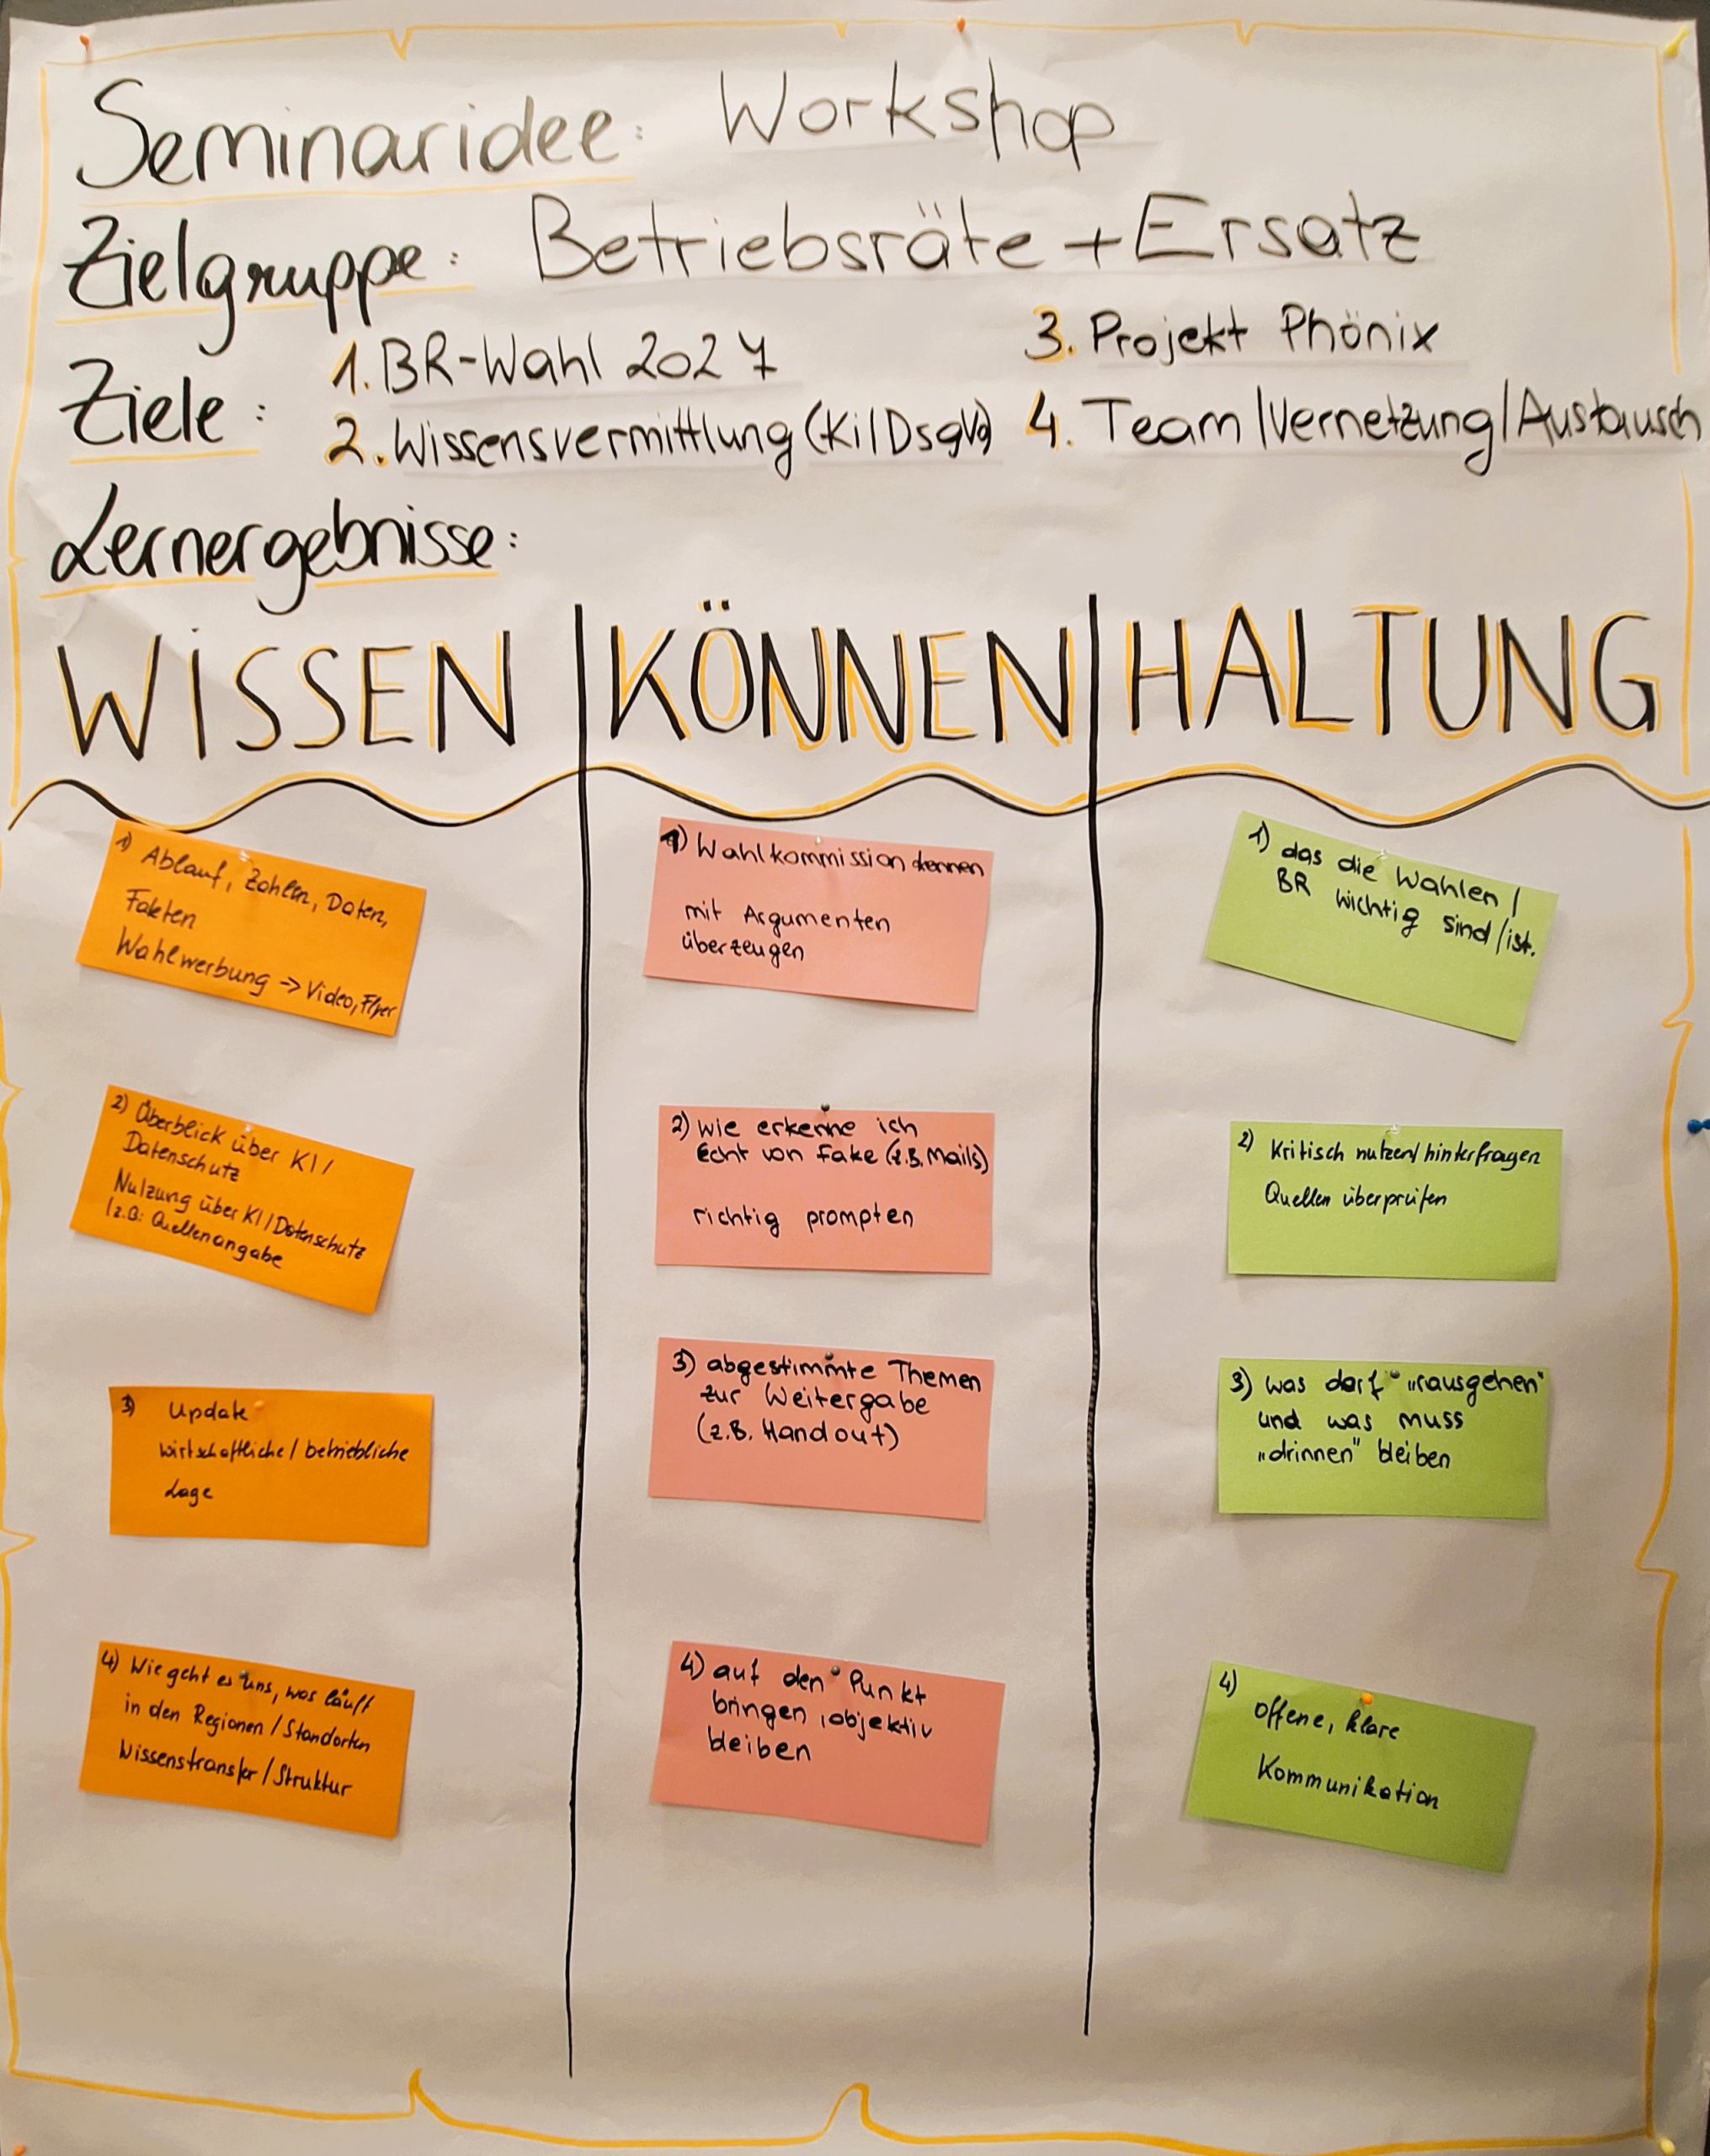 Seminaridee: Workshop
Zielgruppe: Betriebsräte + Ersatz
Ziele: 1. BR-Wahl 2027
2. Wissensvermittlung (Ki/DsgVo)
3. Projekt Phönix
4. Team/Vernetzung/Austausch
Lernergebnisse:
WISSEN
1) Ablauf, Zahlen, Daten,
Fakten
Wahlwerbung -> Video, Flyer
2) Überblick über KI/
Datenschutz
Nutzung über KI/Datenschutz
/z.B: Quellenangabe
3) Update
wirtschaftliche/betriebliche
Lage
4) Wie geht es uns, was läuft
in den Regionen/Standorten
Wissenstransfer/Struktur
KÖNNEN
1) Wahlkommission kennen
mit Argumenten
überzeugen
2) wie erkenne ich
Echt von Fake (z.B. Mails)
richtig prompten
3) abgestimmte Themen
zur Weitergabe
(z.B. Handout)
4) auf den Punkt
bringen, objektiv
bleiben
HALTUNG
1) das die Wahlen/
BR wichtig sind/ist.
2) Kritisch nutzen/hinterfragen
Quellen überprüfen
3) was darf "rausgehen"
und was muss
„drinnen" bleiben
4) offene, klare
Kommunikation